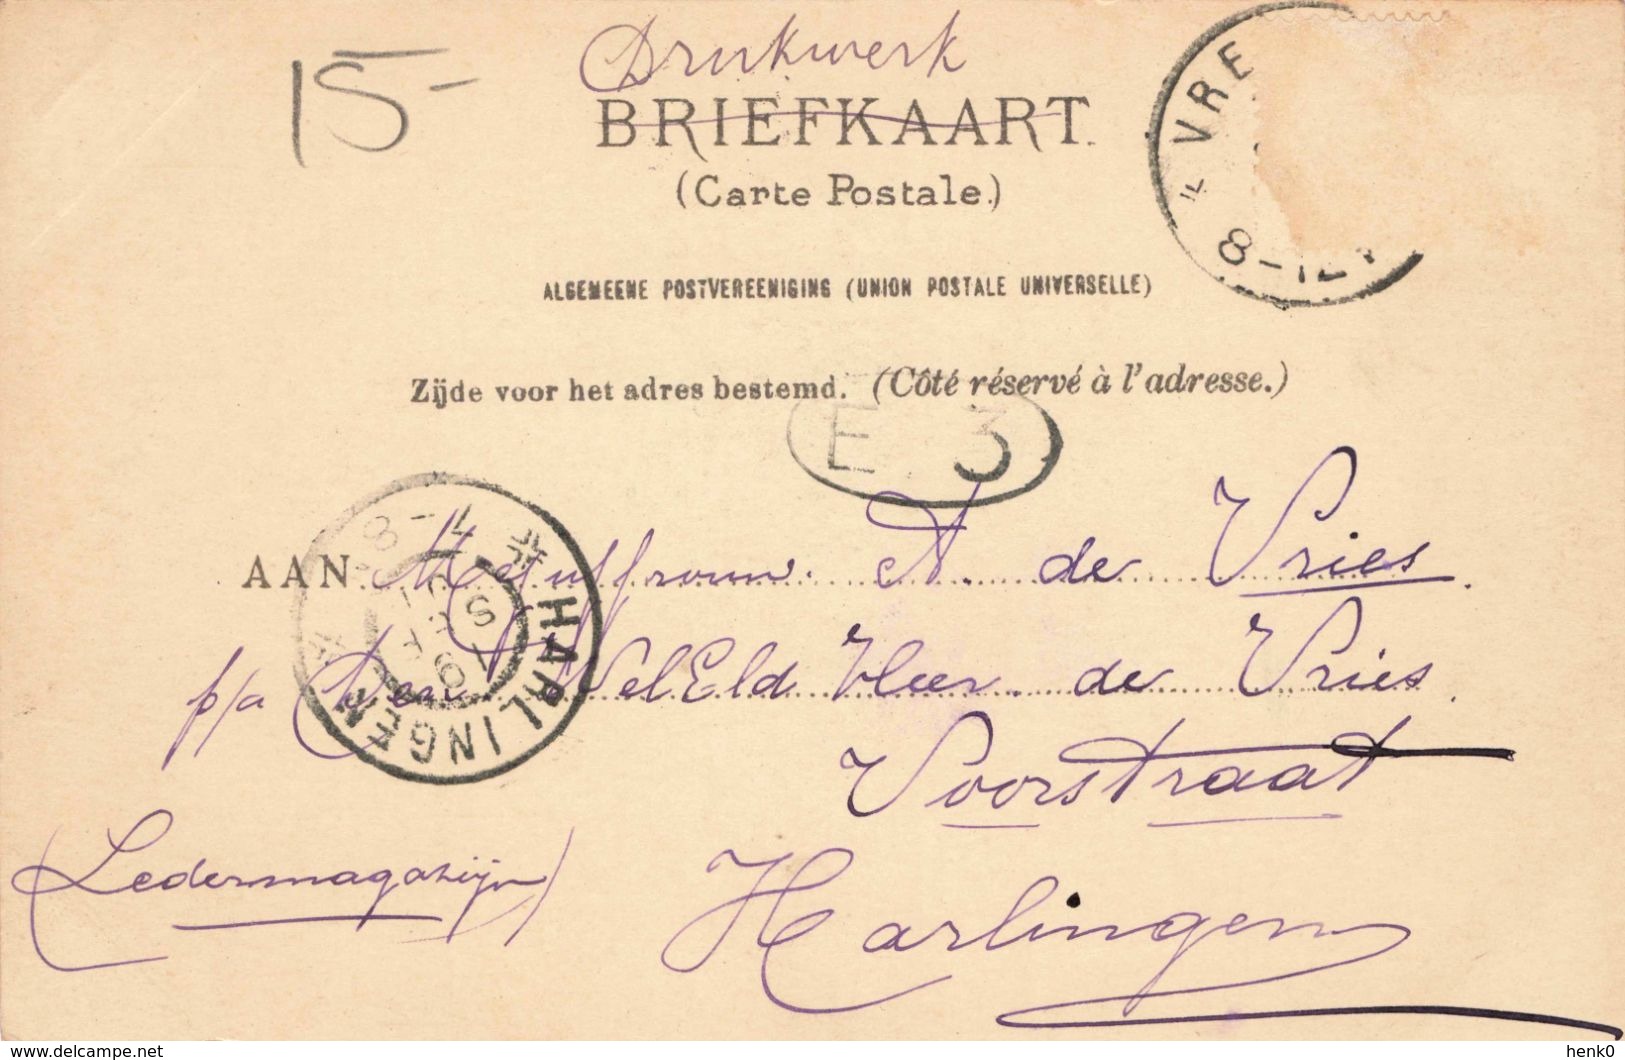 Drukwerk
15-
BRIEFKAART.
(Carte Postale.)
VRE
8-12V
ALGEMEENE POSTVEREENIGING (UNION POSTALE UNIVERSELLE)
Zijde voor het adres bestemd. (Côté réservé à l'adresse.)
E 3
AAN Mejuffrouw. A. de Vries.
p/a den WelEld Heer. de Vries.
HARLINGEN
8-4
Voorstraat
(Ledermagazijn)
Harlingen
delcampe.net
henk0